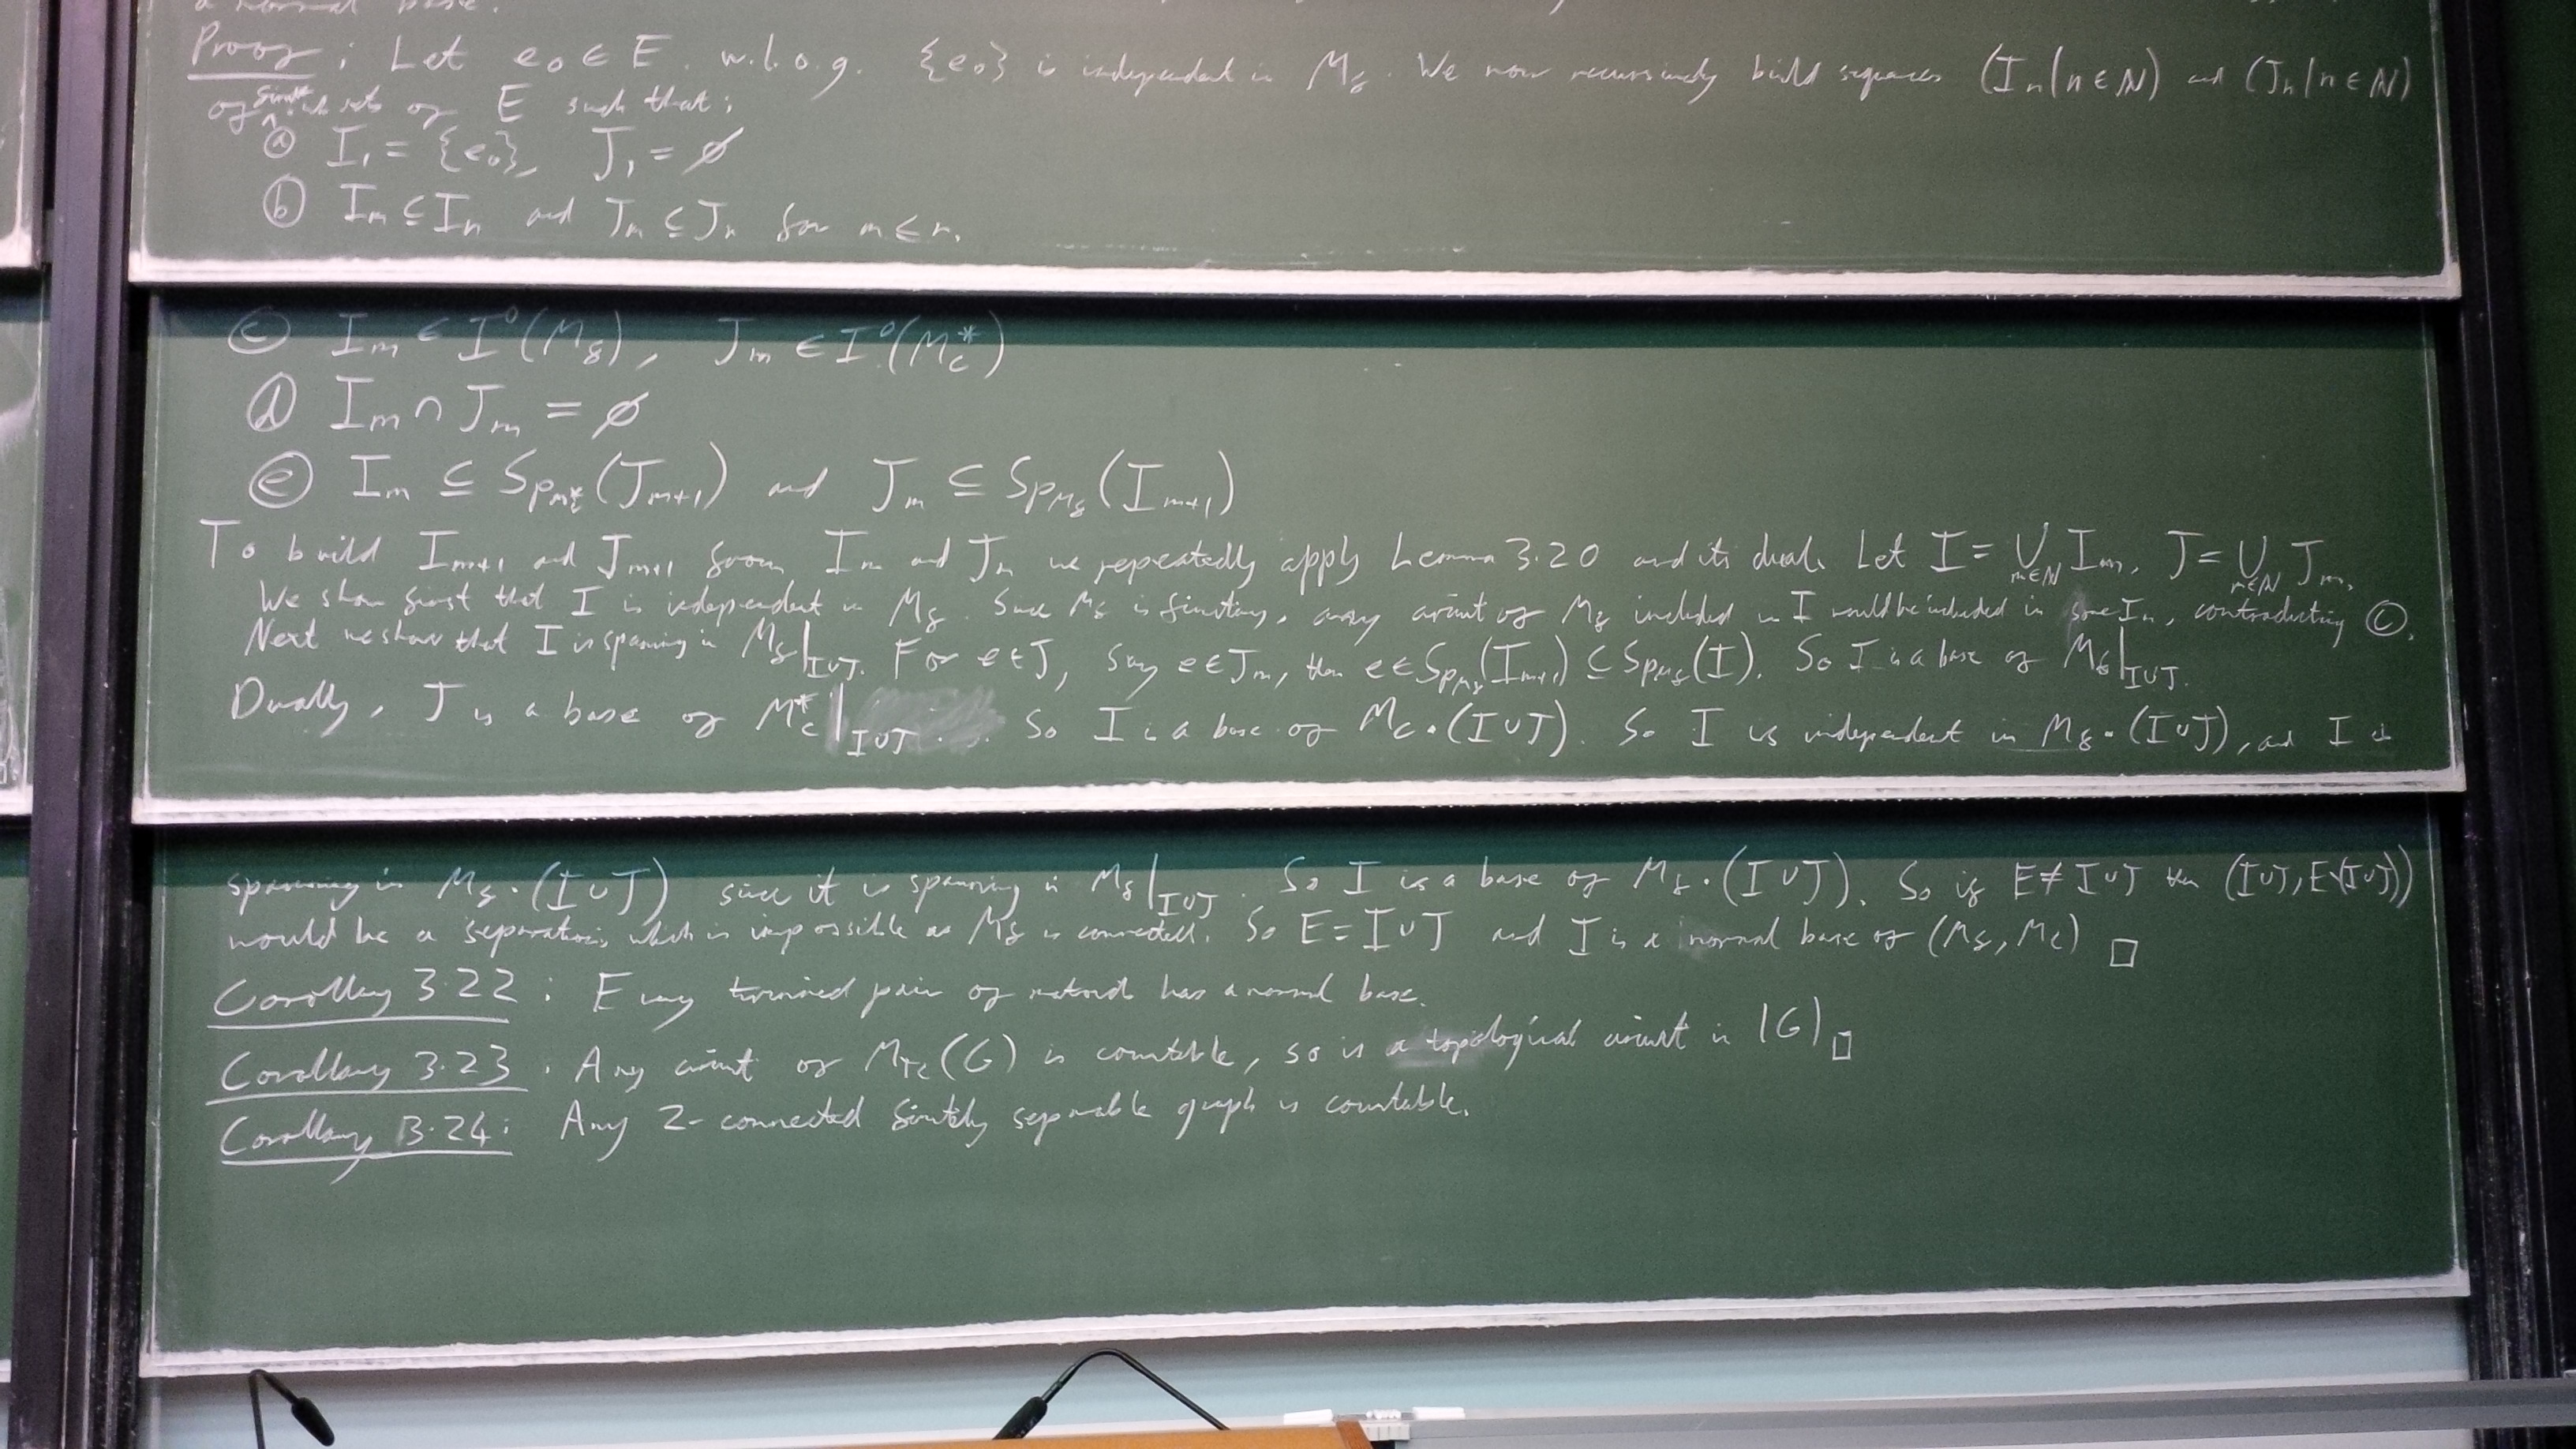 a normal base.
Proof: Let e₀ ∈ E. w.l.o.g. {e₀} is independent in M_f. We now recursively build sequences (I_n | n ∈ ℕ) and (J_n | n ∈ ℕ)
of finite subsets of E such that:
ⓐ I₁ = {e₀}, J₁ = ∅
ⓑ I_m ⊆ I_n and J_m ⊆ J_n for m ≤ n.
ⓒ I_m ∈ I⁰(M_f), J_m ∈ I⁰(M_c^*)
ⓓ I_m ∩ J_m = ∅
ⓔ I_m ⊆ Sp_{M_c^*}(J_{m+1}) and J_m ⊆ Sp_{M_f}(I_{m+1})
To build I_{m+1} and J_{m+1} from I_m and J_m we repeatedly apply Lemma 3.20 and its dual. Let I = ⋃_{m∈ℕ} I_m, J = ⋃_{m∈ℕ} J_m.
We show first that I is independent in M_f. Since M_f is finitary, any circuit of M_f included in I would be included in some I_m, contradicting ⓒ.
Next we show that I is spanning in M_f|_{I∪J}. For e∈J, say e∈J_m, then e∈Sp_{M_f}(I_{m+1}) ⊆ Sp_{M_f}(I). So I is a base of M_f|_{I∪J}.
Dually, J is a base of M_c^*|_{I∪J}. So I is a base of M_c.(I∪J). So I is independent in M_f.(I∪J), and I is
spanning in M_f.(I∪J) since it is spanning in M_f|_{I∪J}. So I is a base of M_f.(I∪J). So if E ≠ I∪J then (I∪J, E∖(I∪J))
would be a separation, which is impossible as M_f is connected. So E = I∪J and I is a normal base of (M_f, M_c) □
Corollary 3.22: Every twinned pair of matroids has a normal base.
Corollary 3.23: Any circuit of M_{TC}(G) is countable, so is a topological circuit in |G| □
Corollary 3.24: Any 2-connected finitely separable graph is countable.